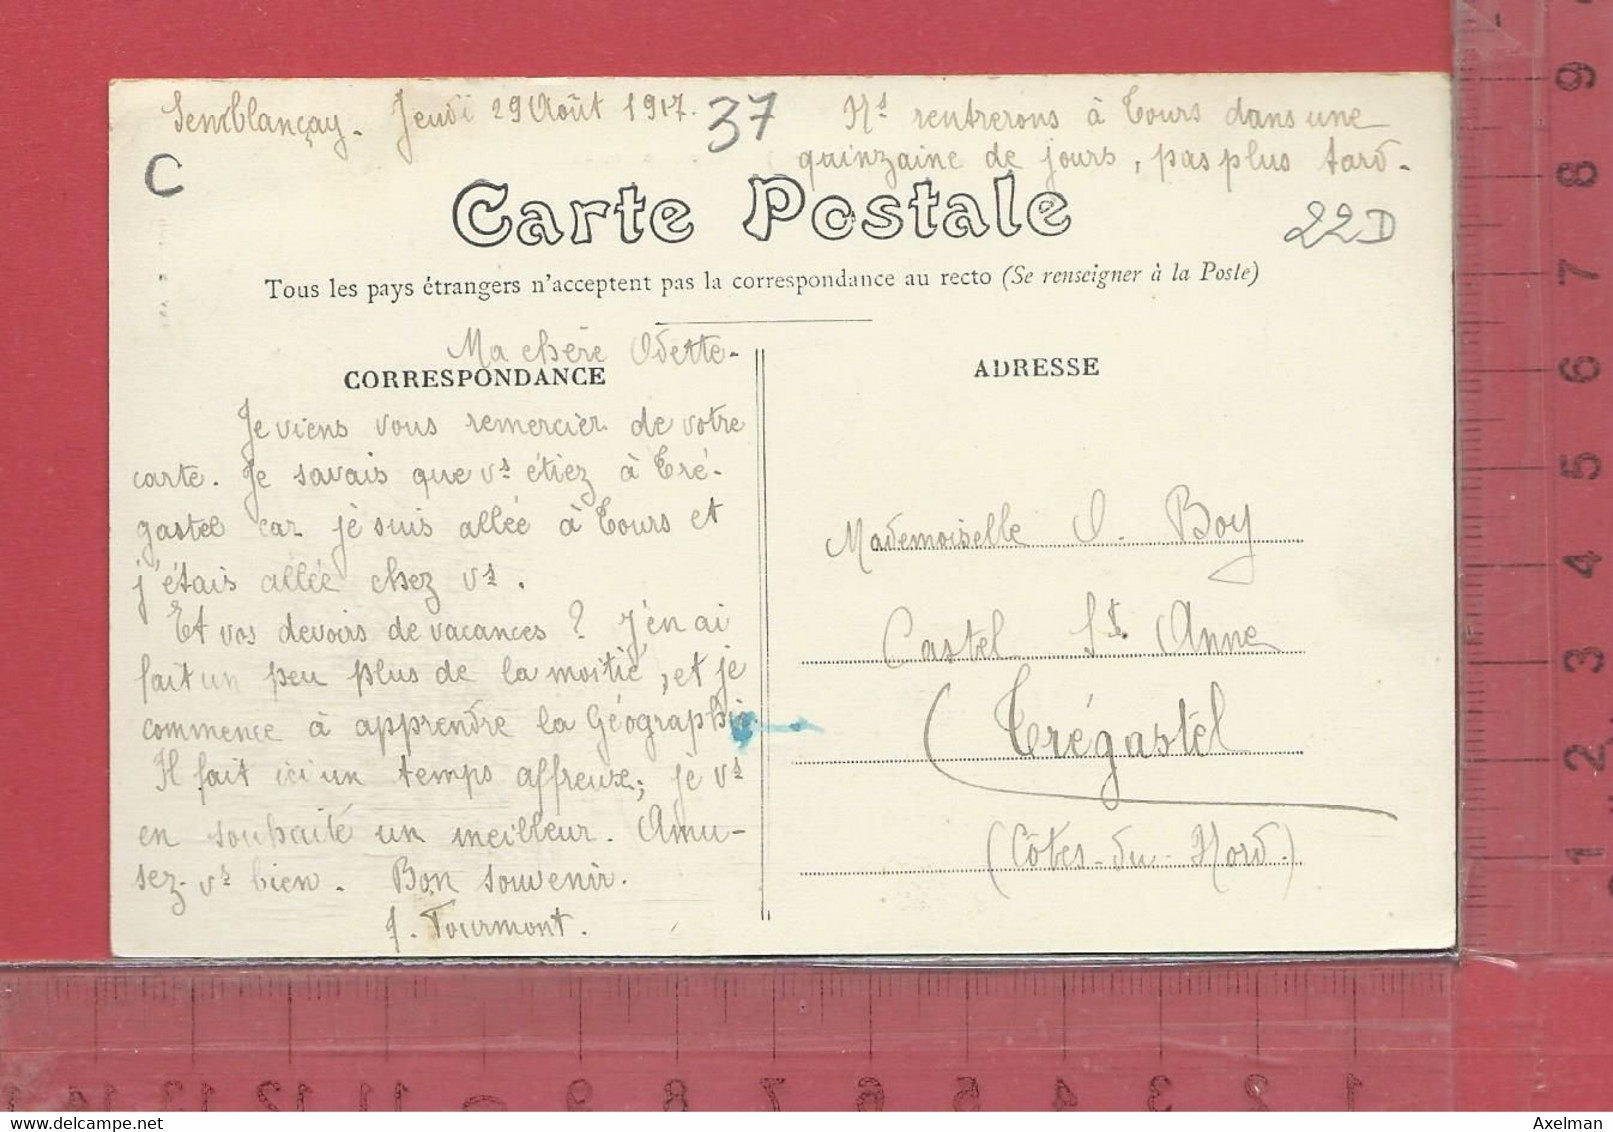 Semblançay. Jeudi 29 Août 1917. 37
Ns rentrerons à Tours dans une
quinzaine de jours, pas plus tard.
C
Carte Postale
22D
Tous les pays étrangers n'acceptent pas la correspondance au recto (Se renseigner à la Poste)
Ma chère Odette-
CORRESPONDANCE
Je viens vous remercier de votre
carte. Je savais que vs étiez à Tré-
gastel car je suis allée à Tours et
j'étais allée chez vs.
Et vos devoirs de vacances ? J'en ai
fait un peu plus de la moitié, et je
commence à apprendre la Géographie
Il fait ici un temps affreux; je vs
en souhaite un meilleur. Amu-
sez-vs bien. Bon souvenir.
J. Tourmont.
ADRESSE
Mademoiselle O. Boy
Castel Ste Anne
Trégastel
(Côtes-du-Nord.)
9
8
7
6
5
4
3
2
1
14 13 12 11 9 8 7 6 5 4 3 2 1
www.delcampe.net
Axelman